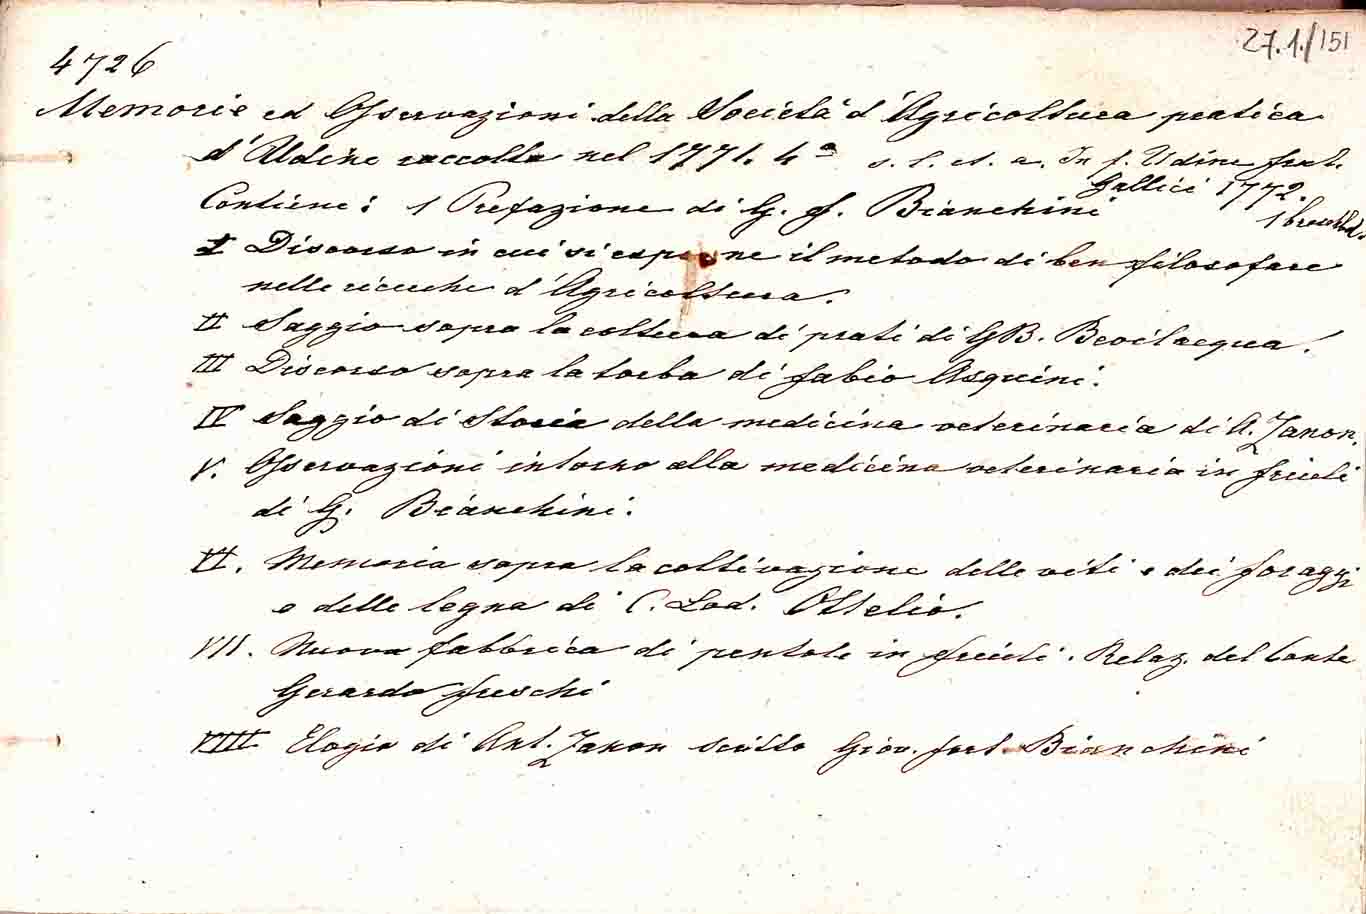 27.1./151
4726
Memorie ed Osservazioni della Società d'Agricoltura pratica
d'Udine raccolte nel 1771. 4° s. l. et. a. In f. Udine frat.
Gallici 1772.
Contiene: 1 Prefazione di G. F. Bianchini
1
I Discorso in cui si espone il metodo di ben filosofare
nelle ricerche d'Agricoltura.
II Saggio sopra la coltura di prati di GB. Bevilacqua.
III Discorso sopra la torba di Fabio Asquini.
IV Saggio di Storia della medicina veterinaria di A. Zanon.
V. Osservazioni intorno alla medicina veterinaria in Friuli
di G. Bianchini.
VI. Memoria sopra la coltivazione delle viti e dei foraggi
e delle legna di C. Lod. Ottelio.
VII. Nuova fabbrica di pentole in Friuli. Relaz. del Conte
Gerardo Freschi
VIII Elogio di Ant. Zanon scritto Giov. Fort. Bianchini